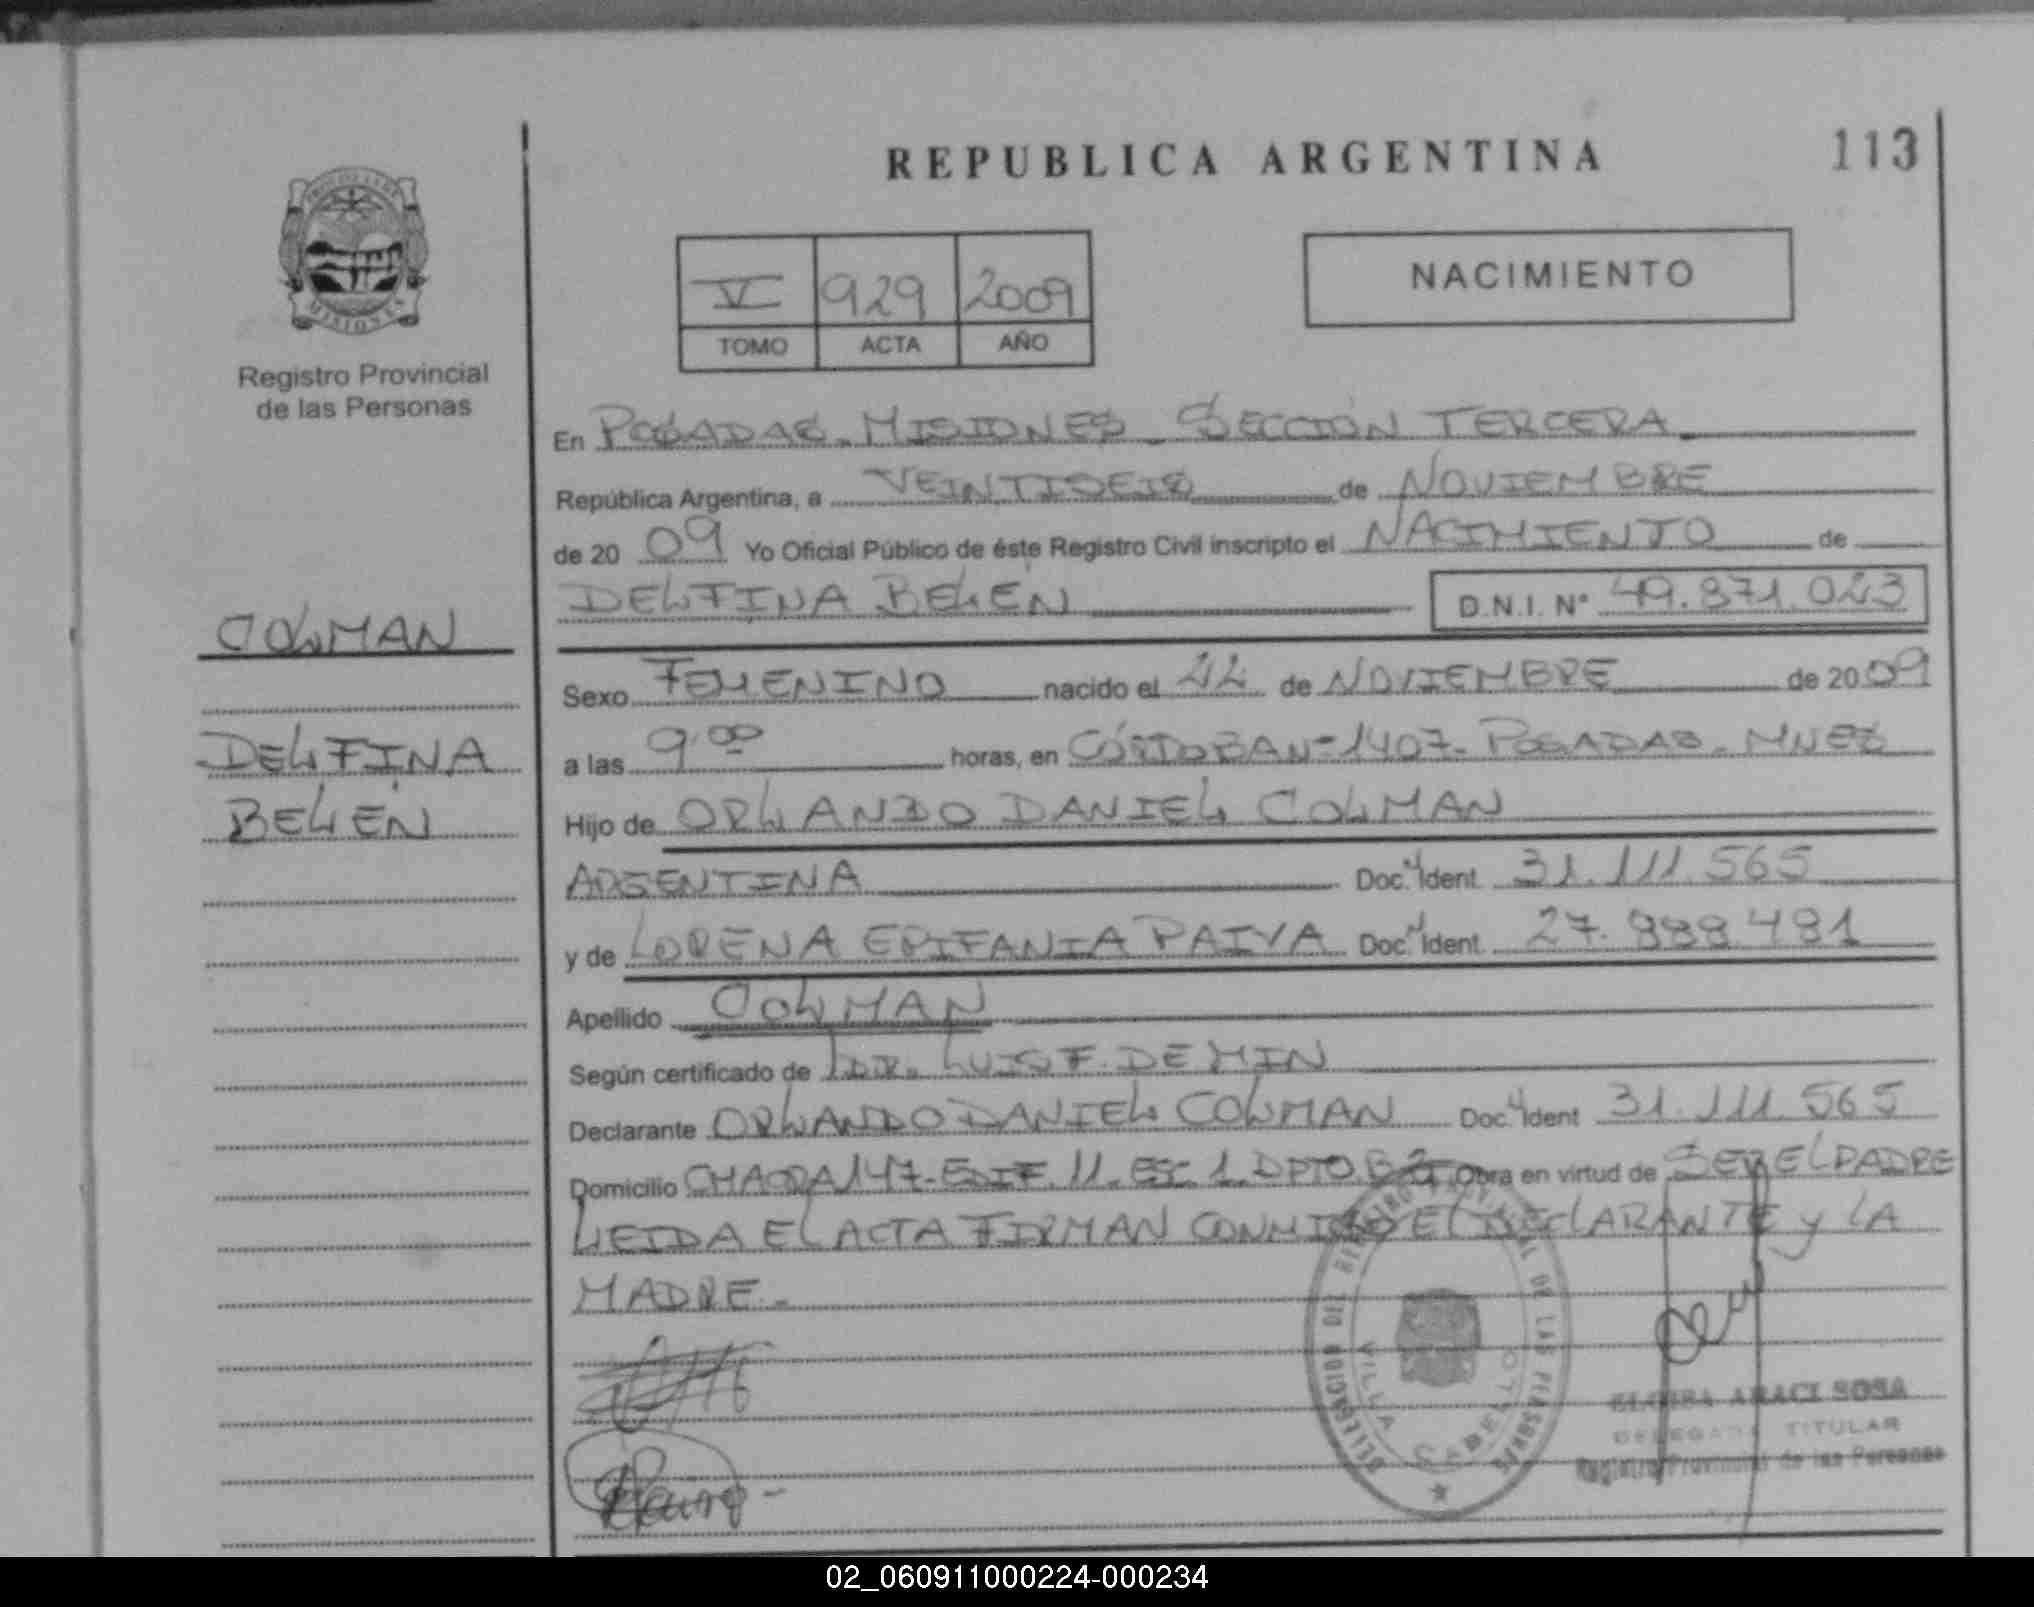 REPUBLICA ARGENTINA
113
MISIONES
Registro Provincial
de las Personas
V 929 2009
TOMO ACTA AÑO
NACIMIENTO
En POSADAS - MISIONES - SECCIÓN TERCERA
República Argentina, a VEINTISEIS de NOVIEMBRE
de 20 09 Yo Oficial Público de éste Registro Civil inscripto el NACIMIENTO de
DELFINA BELÉN D.N.I. Nº 49.871.023
COLMAN
DELFINA
BELÉN
Sexo FEMENINO nacido el de NOVIEMBRE de 20 09
a las 9.00 horas, en 1407 - POSADAS - MNES
Hijo de ORLANDO DANIEL COLMAN
ARGENTINA Doc. Ident. 31.111.565
y de LORENA EPIFANIA PAIVA Doc. Ident. 27.988.481
Apellido COLMAN
Según certificado de DR. LUIS F. DEMIN
Declarante ORLANDO DANIEL COLMAN Doc. Ident 31.111.565
Domicilio CHACRA 147 - EDIF. 11. ESC. 1. DPTO. B Obra en virtud de SER EL PADRE
LEIDA EL ACTA FIRMAN CONMIGO EL DECLARANTE Y LA
MADRE.-
DELEGACION DEL REGISTRO PROVINCIAL DE LAS PERSONAS
VILLA CABELLO
ARACI SOSA
DELEGADA TITULAR
Registro Provincial de las Personas
02_060911000224-000234